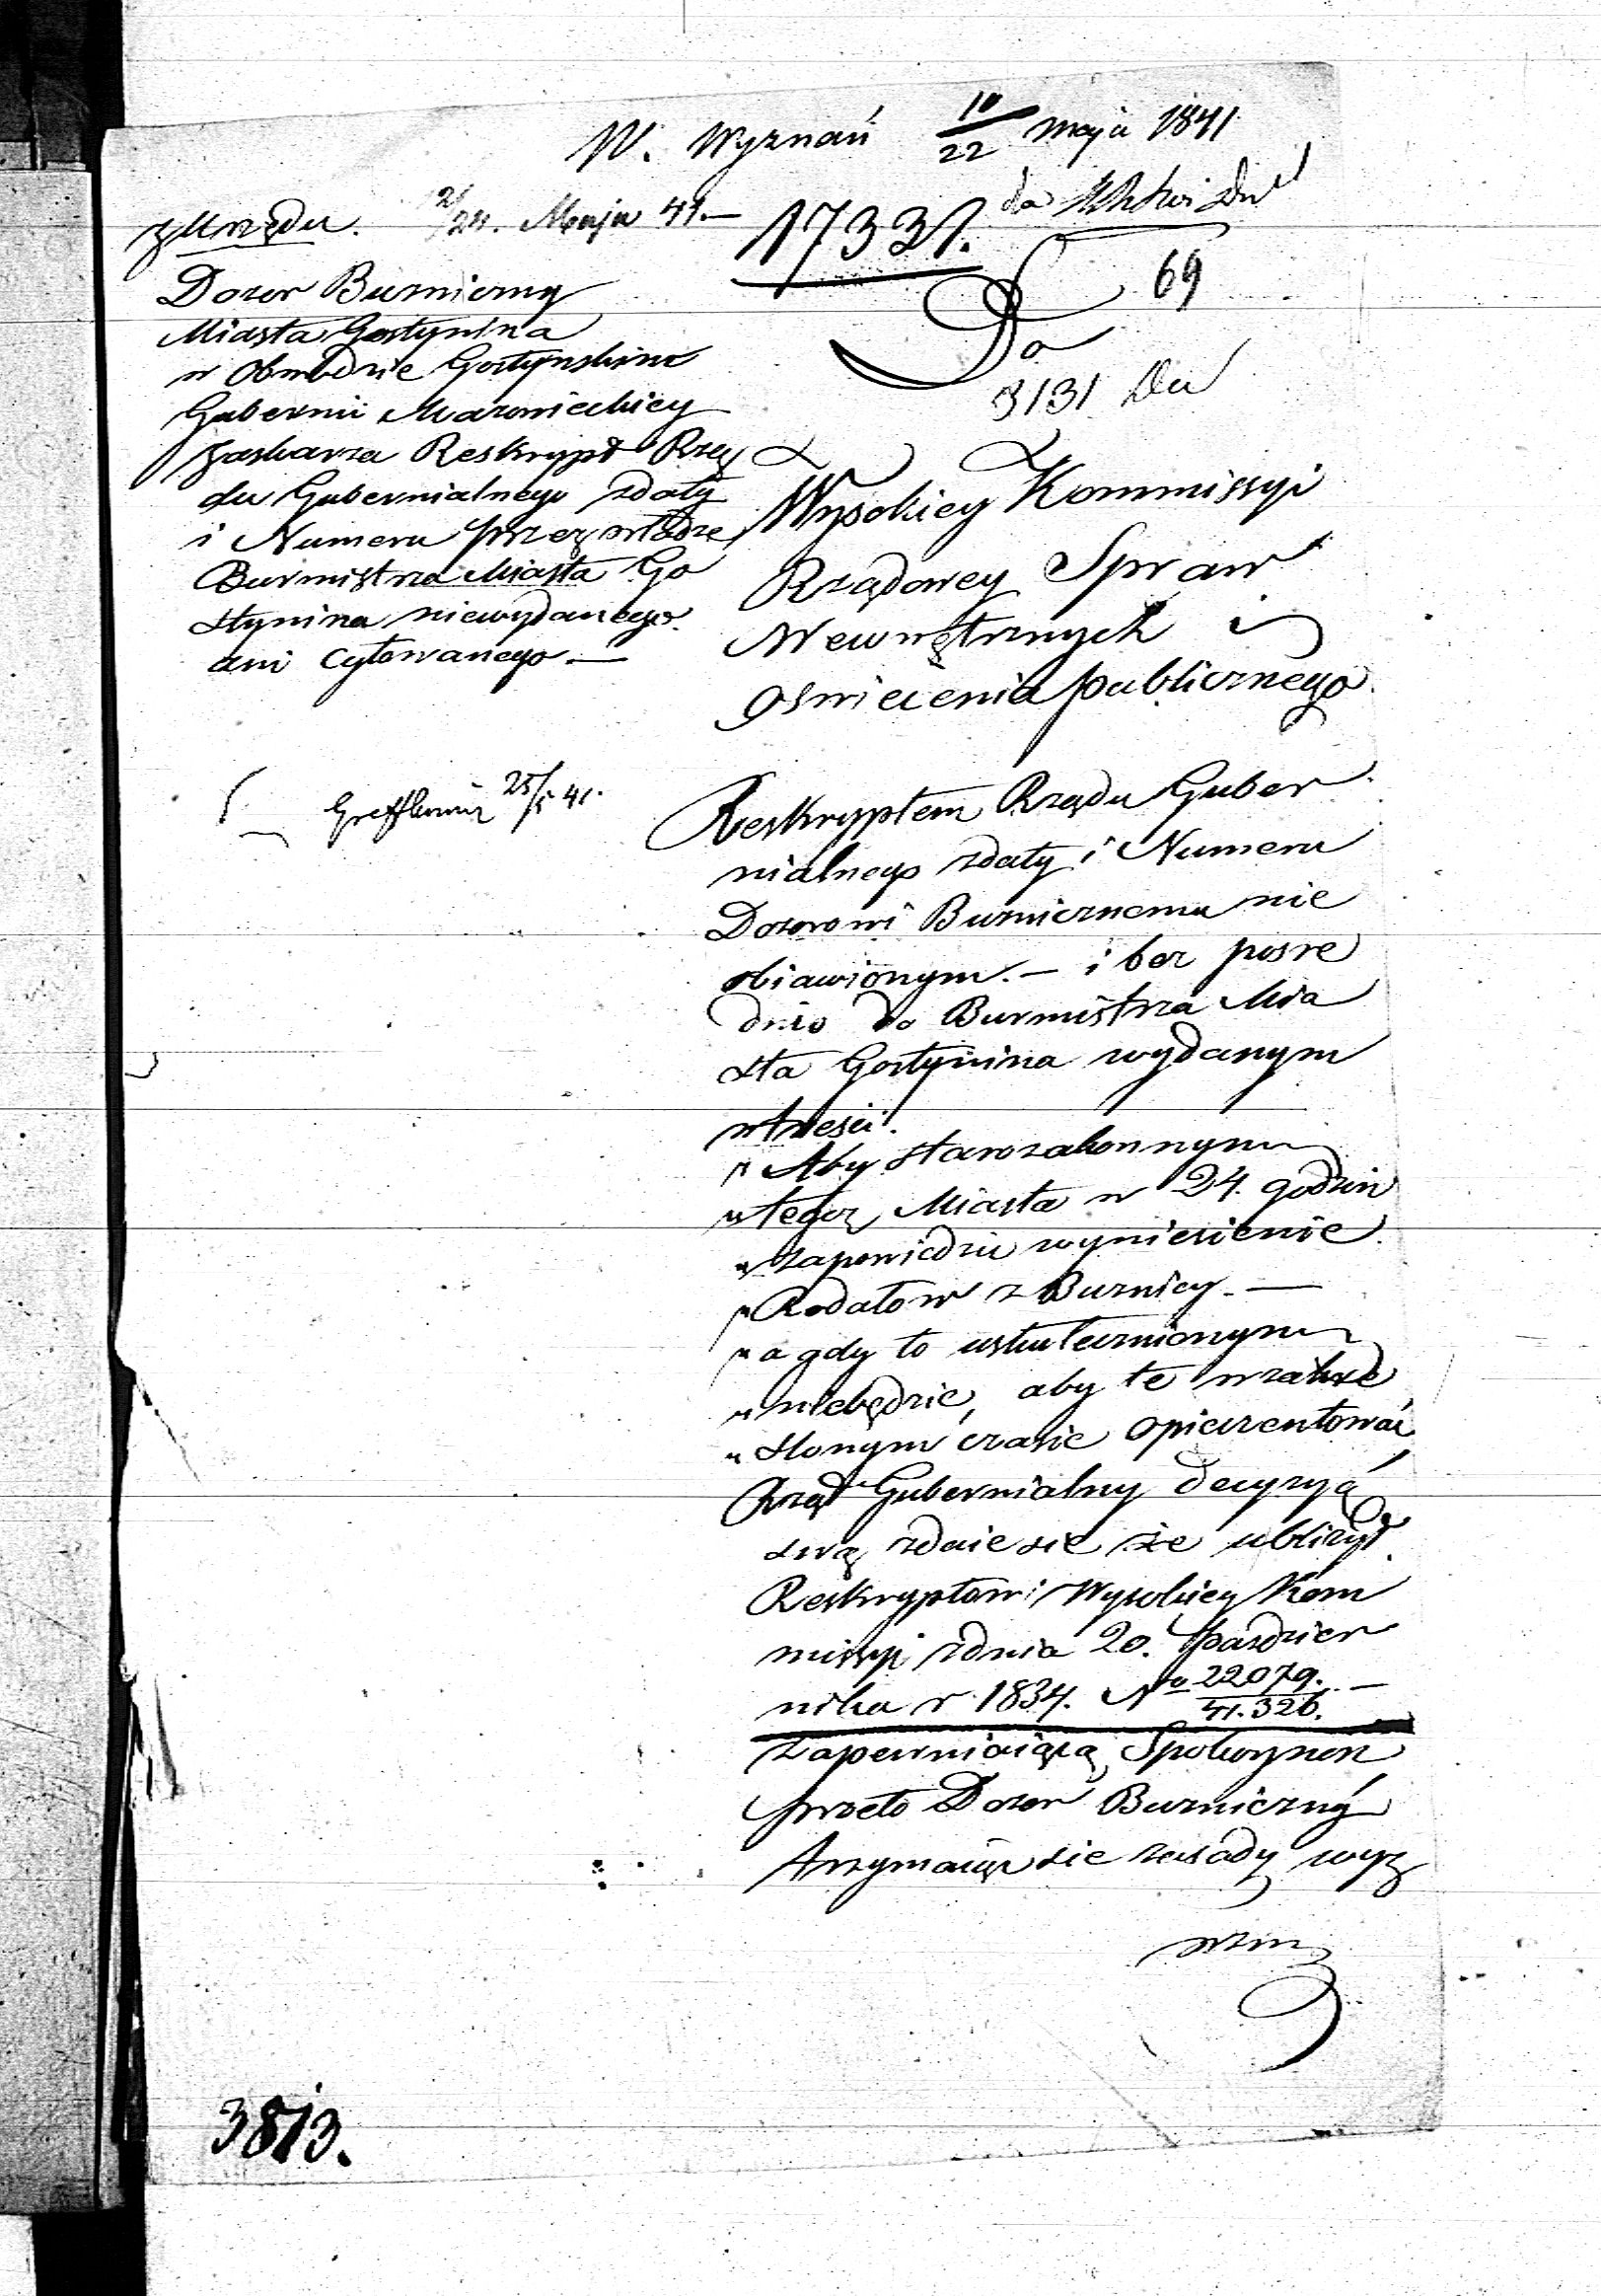 W. Wyznań 10/22 Maja 1841
12/24. Maja 41.—
17331.
do
69
z Urzędu.
Dozor Bużniczny
Miasta Gostynina
w Obwodzie Gostynskim
Gubernii Mazowieckiey
zaskarza Reskrypt Rzą
du Gubernialnego zdaty
i Numeru przez władzę
Burmistrza Miasta Go
stynina niewydanego
ani cytowanego —
25/5 41.
Do
3131
Wysokiey Kommissyi
Rządowey Spraw
Wewnętrznych i
Oswiecenia publicznego
Reskryptem Rządu Guber
nialnego zdaty i Numeru
Dozorowi Buznicznemu nie
obiawionym. — i bez posre
dnio do Burmistrza Mia
sta Gostynina wydanym
w tresci.
„ Aby starozakonnym
„ tegoz Miasta w 24. godzin
„ zapowiedzic wyniesienie
„ Rodałow z Buznicy. —
„ a gdy to uskutecznionym
„ niebędzie, aby te wzakre
„ slonym czasie opieczentować
Rząd Gubernialny decyzyą
swą zdaie sie że ubliżył
Reskryptowi Wysokiey Kom
missyi zdnia 20. Pazdzier
nika r 1834. No 22079./41.326. —
zapewniaiącą Spokoynon
przeto Dozor Buzniczny
trzymaiąc sie zasady wyz
3813.